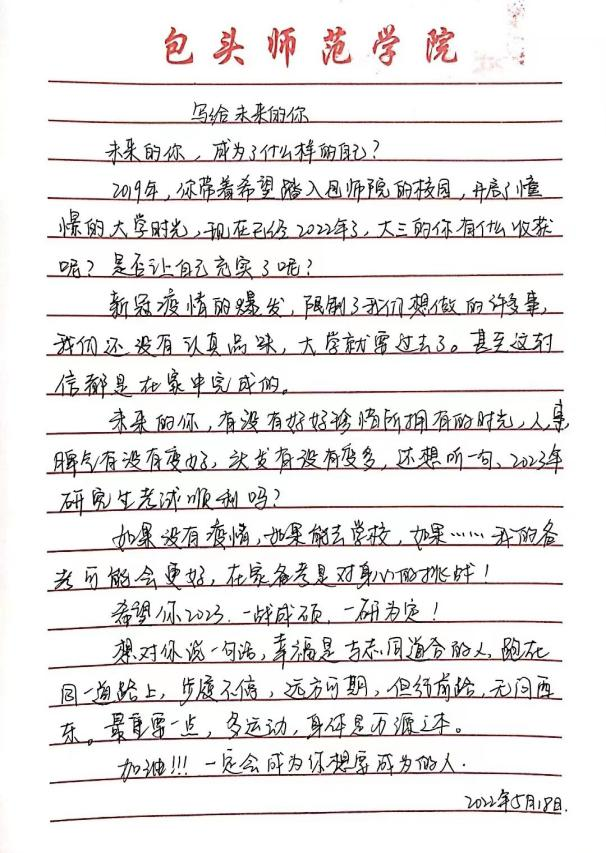 包头师范学院
写给未来的你
未来的你，成为了什么样的自己？
2019年，你带着希望踏入包师院的校园，开启了憧
憬的大学时光，现在已经2022年了，大三的你有什么收获
呢？是否让自己充实了呢？
新冠疫情的爆发，限制了我们想做的许多事，
我们还没有认真品味，大学就要过去了。甚至这封
信都是在家中完成的。
未来的你，有没有好好珍惜所拥有的时光，人事
脾气有没有变好，头发有没有变多，还想听一句、2023年
研究生考试顺利吗？
如果没有疫情，如果能去学校，如果……我的备
考可能会更好，在家备考是对身心的挑战！
希望你2023.一战成硕，一研为定！
想对你说一句话，幸福是与志同道合的人，跑在
同一道路上，步履不停，远方可期，但行前路，无问西
东。最重要一点，多运动，身体是万源之本。
加油!!! 一定会成为你想要成为的人.
2022年5月18日.